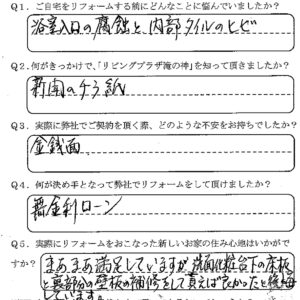 Q1．ご自宅をリフォームする前にどんなことに悩んでいましたか？
浴室入口の腐蝕と、内部タイルのヒビ
Q2．何がきっかけで、「リビングプラザ滝の神」を知って頂きましたか？
新聞のチラシ紙
Q3．実際に弊社でご契約を頂く際、どのような不安をお持ちでしたか？
金銭面
Q4．何が決め手となって弊社でリフォームをして頂けましたか？
無金利ローン
Q5．実際にリフォームをおこなった新しいお家の住み心地はいかがで
すか？
まあまあ満足していますが、洗面化粧台下の床板
と裏部分の壁板の補修をして貰えば良かったと後悔
しています。